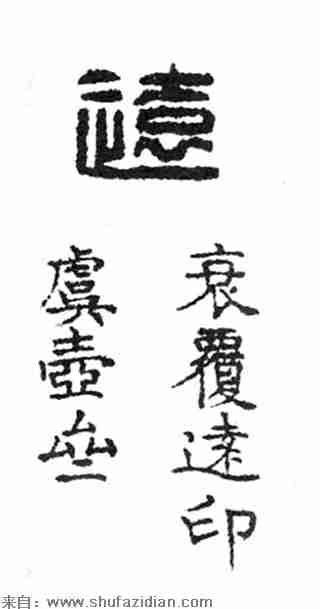 遠
袁覆遠印
虞壺
来自：www.shufazidian.com